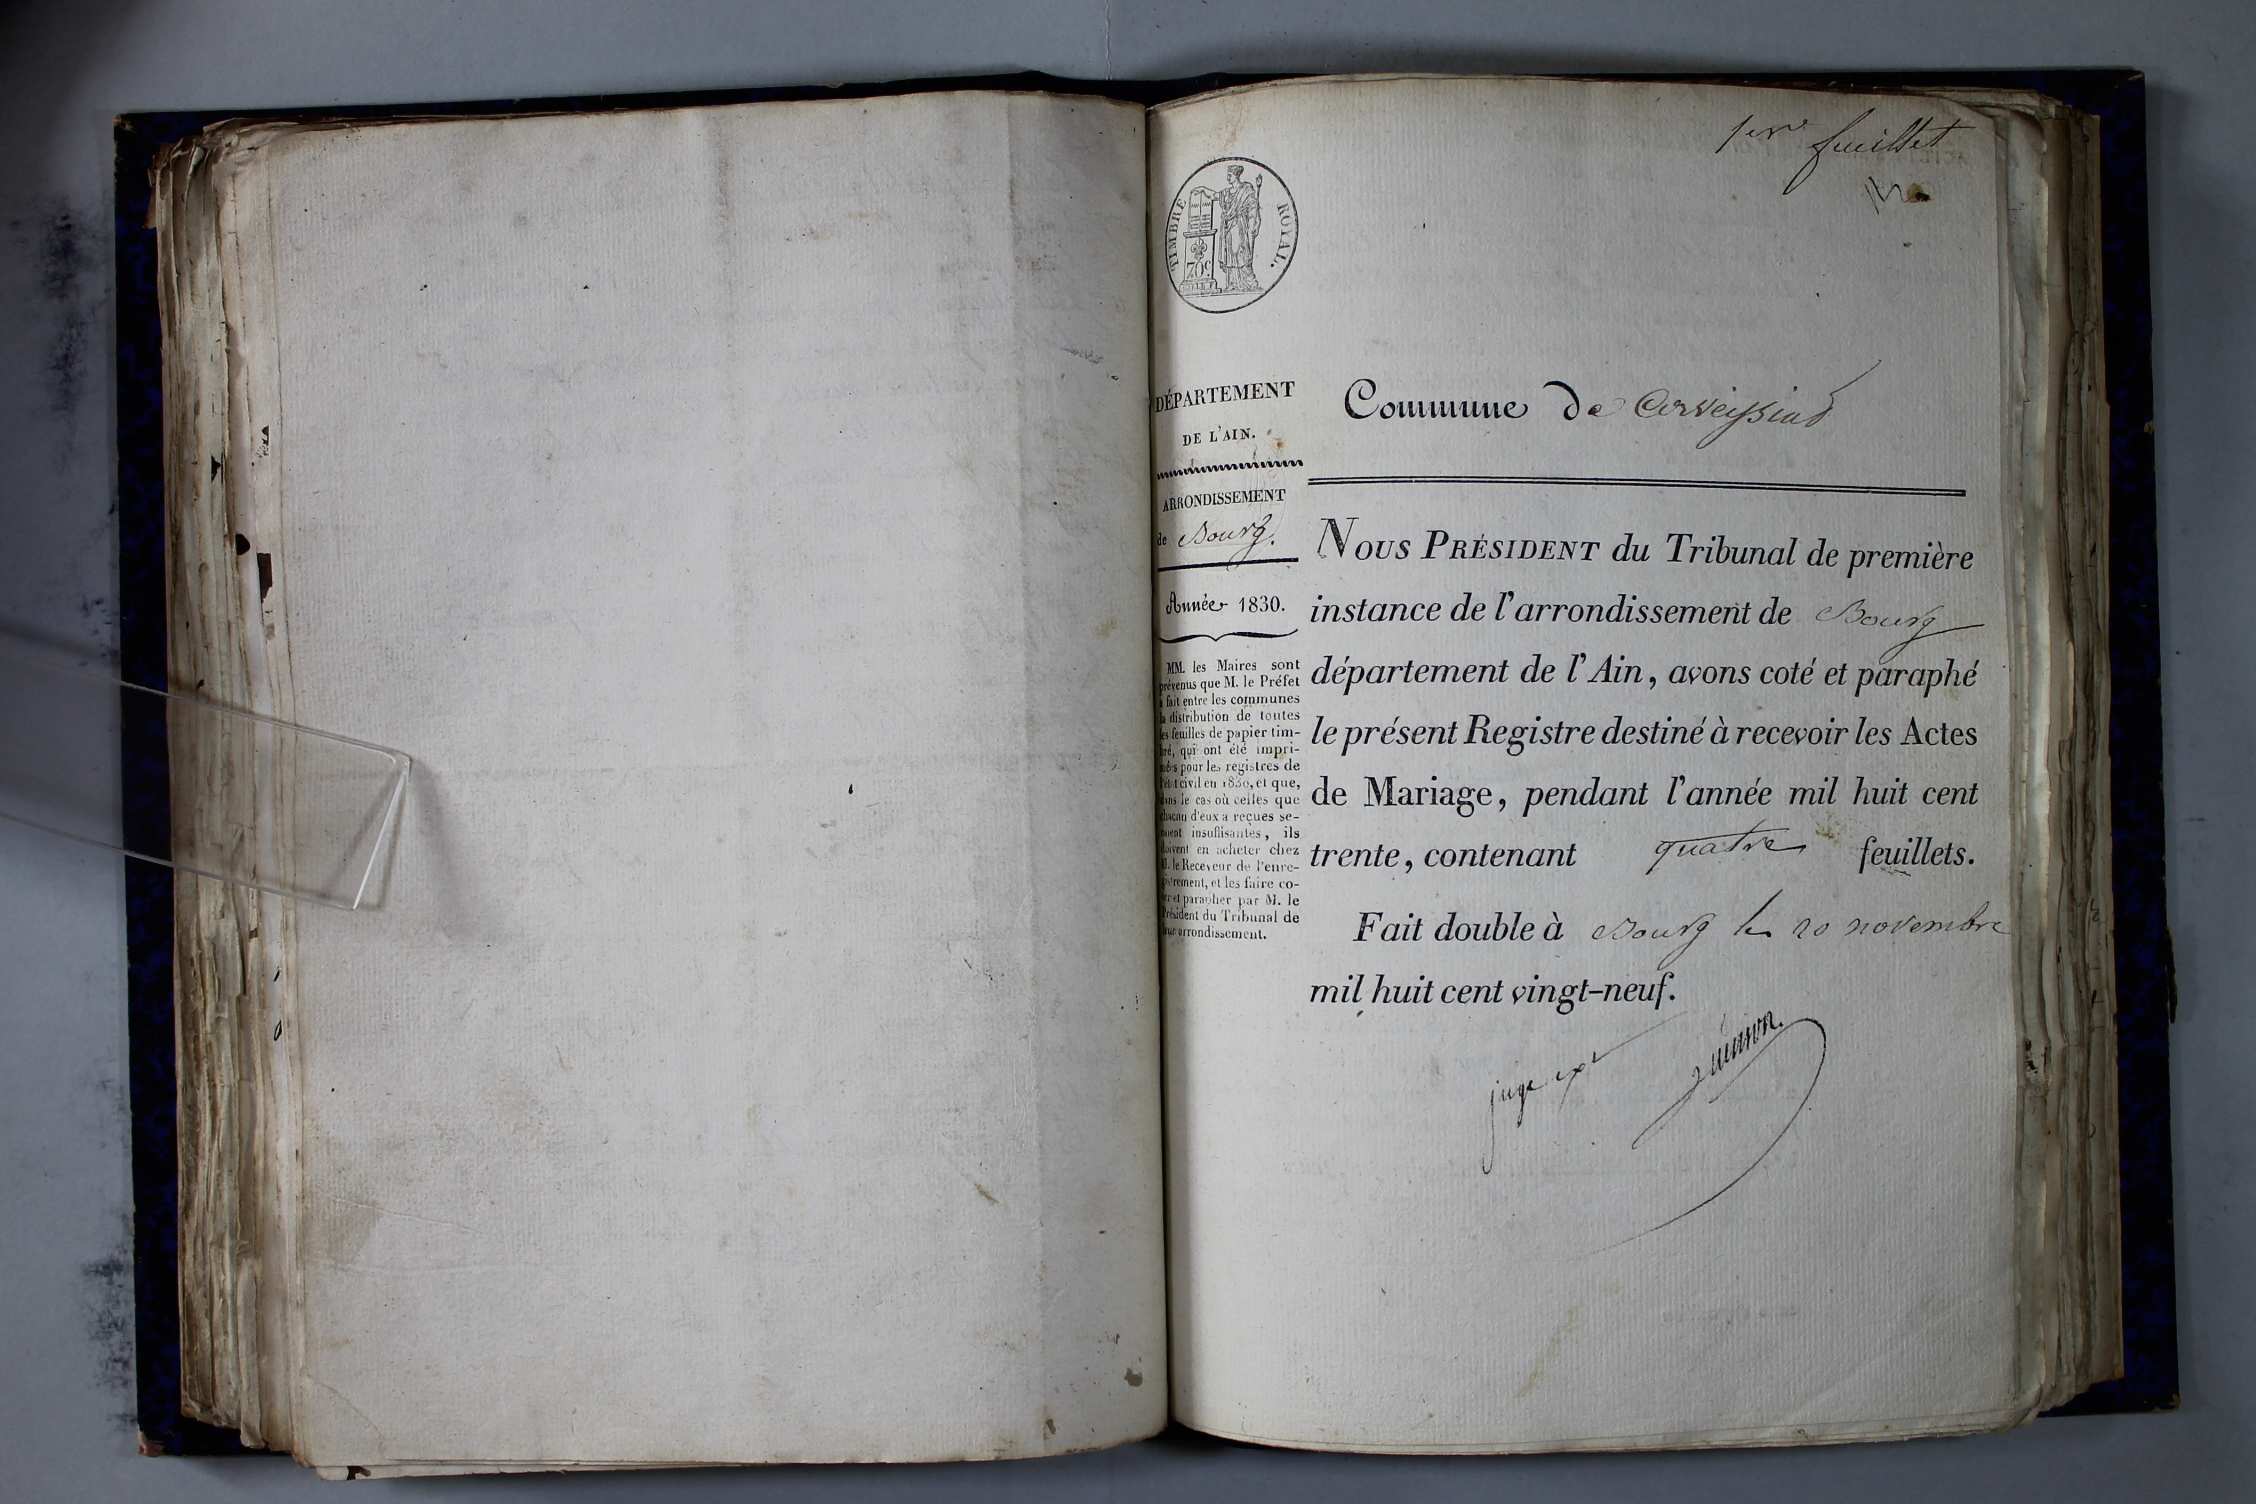 1er feuillet
TIMBRE ROYAL.
70c
DÉPARTEMENT
DE L'AIN.
ARRONDISSEMENT
de Bourg.
Année 1830.
MM. les Maires sont
prévenus que M. le Préfet
a fait entre les communes
la distribution de toutes
les feuilles de papier tim-
bré, qui ont été impri-
mées pour les registres de
l'état civil en 1830, et que,
dans le cas où celles que
chacun d'eux a reçues se-
raient insuffisantes, ils
doivent en acheter chez
M. le Receveur de l'enre-
gistrement, et les faire co-
ter et parapher par M. le
Président du Tribunal de
leur arrondissement.
Commune de Corveyssiad
NOUS PRÉSIDENT du Tribunal de première
instance de l'arrondissement de Bourg
département de l'Ain, avons coté et paraphé
le présent Registre destiné à recevoir les Actes
de Mariage, pendant l'année mil huit cent
trente, contenant quatre feuillets.
Fait double à Bourg le 20 novembre
mil huit cent vingt-neuf.
juge